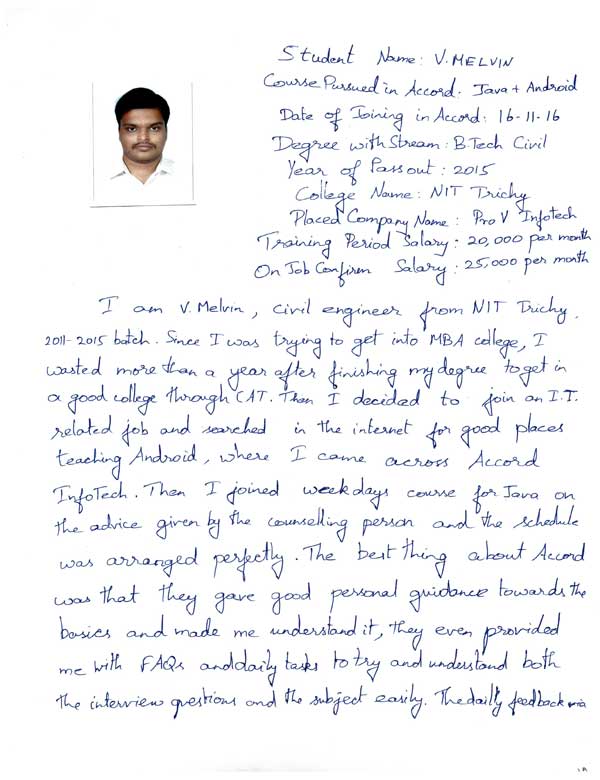 Student Name: V. MELVIN
Course Pursued in Accord: Java + Android
Date of Joining in Accord: 16-11-16
Degree with Stream: B.Tech Civil
Year of Passout: 2015
College Name: NIT Trichy
Placed Company Name: Pro V Infotech
Training Period Salary: 20,000 per month
On Job Confirm Salary: 25,000 per month
I am V. Melvin, civil engineer from NIT Trichy,
2011-2015 batch. Since I was trying to get into MBA college, I
wasted more than a year after finishing my degree to get in
a good college through CAT. Then I decided to join an I.T.
related job and searched in the internet for good places
teaching Android, where I came across Accord
InfoTech. Then I joined weekdays course for Java on
the advice given by the counselling person and the schedule
was arranged perfectly. The best thing about Accord
was that they gave good personal guidance towards the
basics and made me understand it, they even provided
me with FAQs and daily tasks to try and understand both
the interview questions and the subject easily. The dailly feedback via